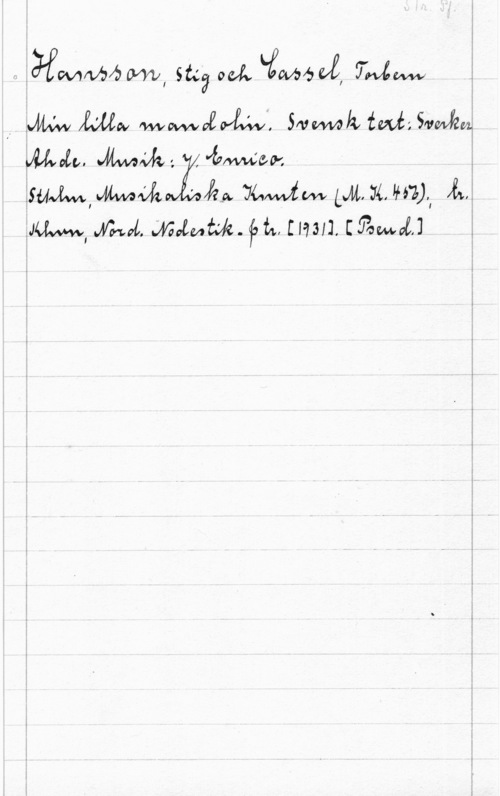 Hansson, Stig och Cassel, Torbern
Min lilla mandolin. Svensk text: Sverker
Ahde. Musik: y. Enrico.
Sthlm, Musikaliska Knuten (M. K. 456); tr.
Khvn, Nord. Nodestik. f tr. [1931]. [Pseud.]